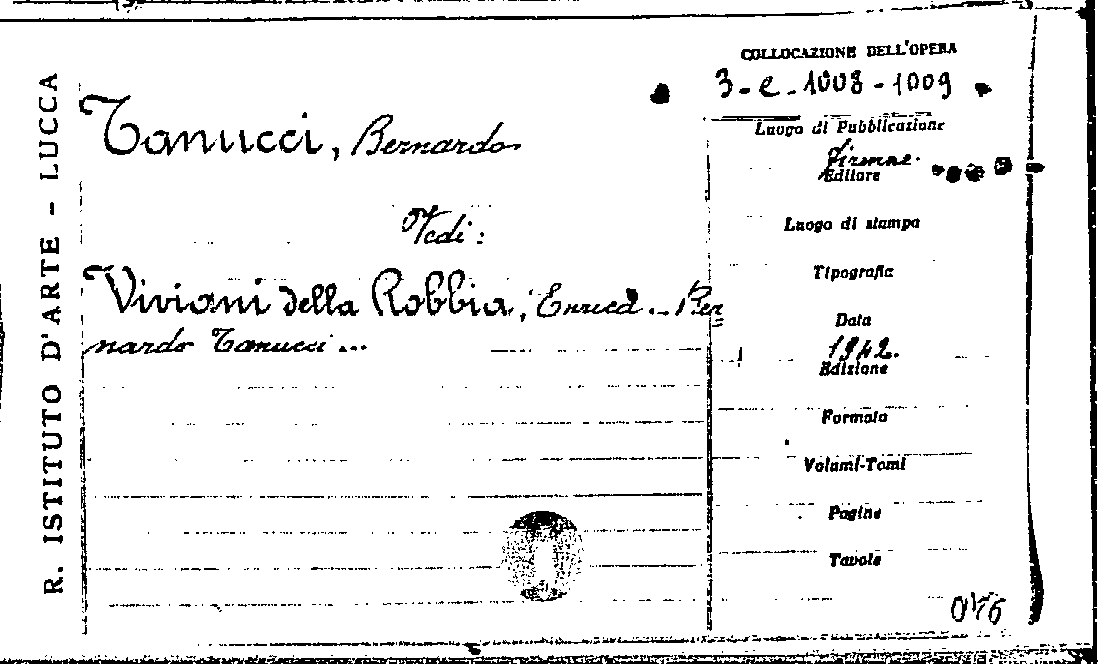 R. ISTITUTO D'ARTE - LUCCA
Tanucci, Bernardo
Vedi:
Viviani della Robbia, Enrica... Ber=
nardo Tanucci...
COLLOCAZIONE DELL'OPERA
3-e-1008-1009
Luogo di Pubblicazione
Firenze.
Editore
Luogo di stampa
Tipografia
Data
1942.
Edizione
Formato
Volumi-Tomi
Pagine
Tavole